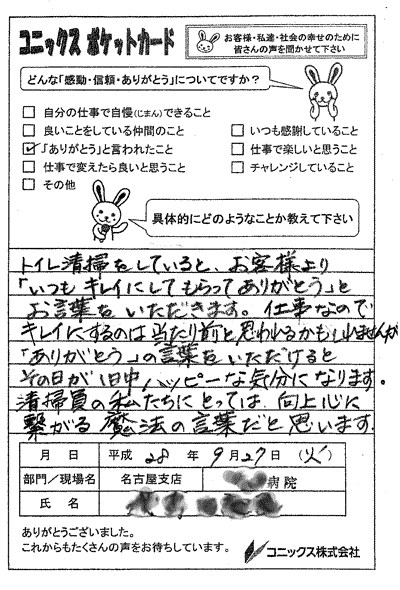 コニックス ポケットカード
お客様・私達・社会の幸せのために
皆さんの声を聞かせて下さい
どんな「感動・信頼・ありがとう」についてですか？
□ 自分の仕事で自慢(じまん)できること
□ 良いことをしている仲間のこと
□ いつも感謝していること
☑ 「ありがとう」と言われたこと
□ 仕事で楽しいと思うこと
□ 仕事で変えたら良いと思うこと
□ チャレンジしていること
□ その他
具体的にどのようなことか教えて下さい
トイレ清掃をしていると、お客様より
「いつもキレイにしてもらってありがとう」と
お言葉をいただきます。仕事なので
キレイにするのは当たり前と思われるかもしれませんが
「ありがとう」の言葉をいただけると
その日が1日中ハッピーな気分になります。
清掃員の私たちにとっては、向上心に
繋がる魔法の言葉だと思います。
月 日 平成 28 年 9月27日 (火)
部門／現場名 名古屋支店 病院
氏 名
ありがとうございました。
これからもたくさんの声をお待ちしています。
コニックス株式会社